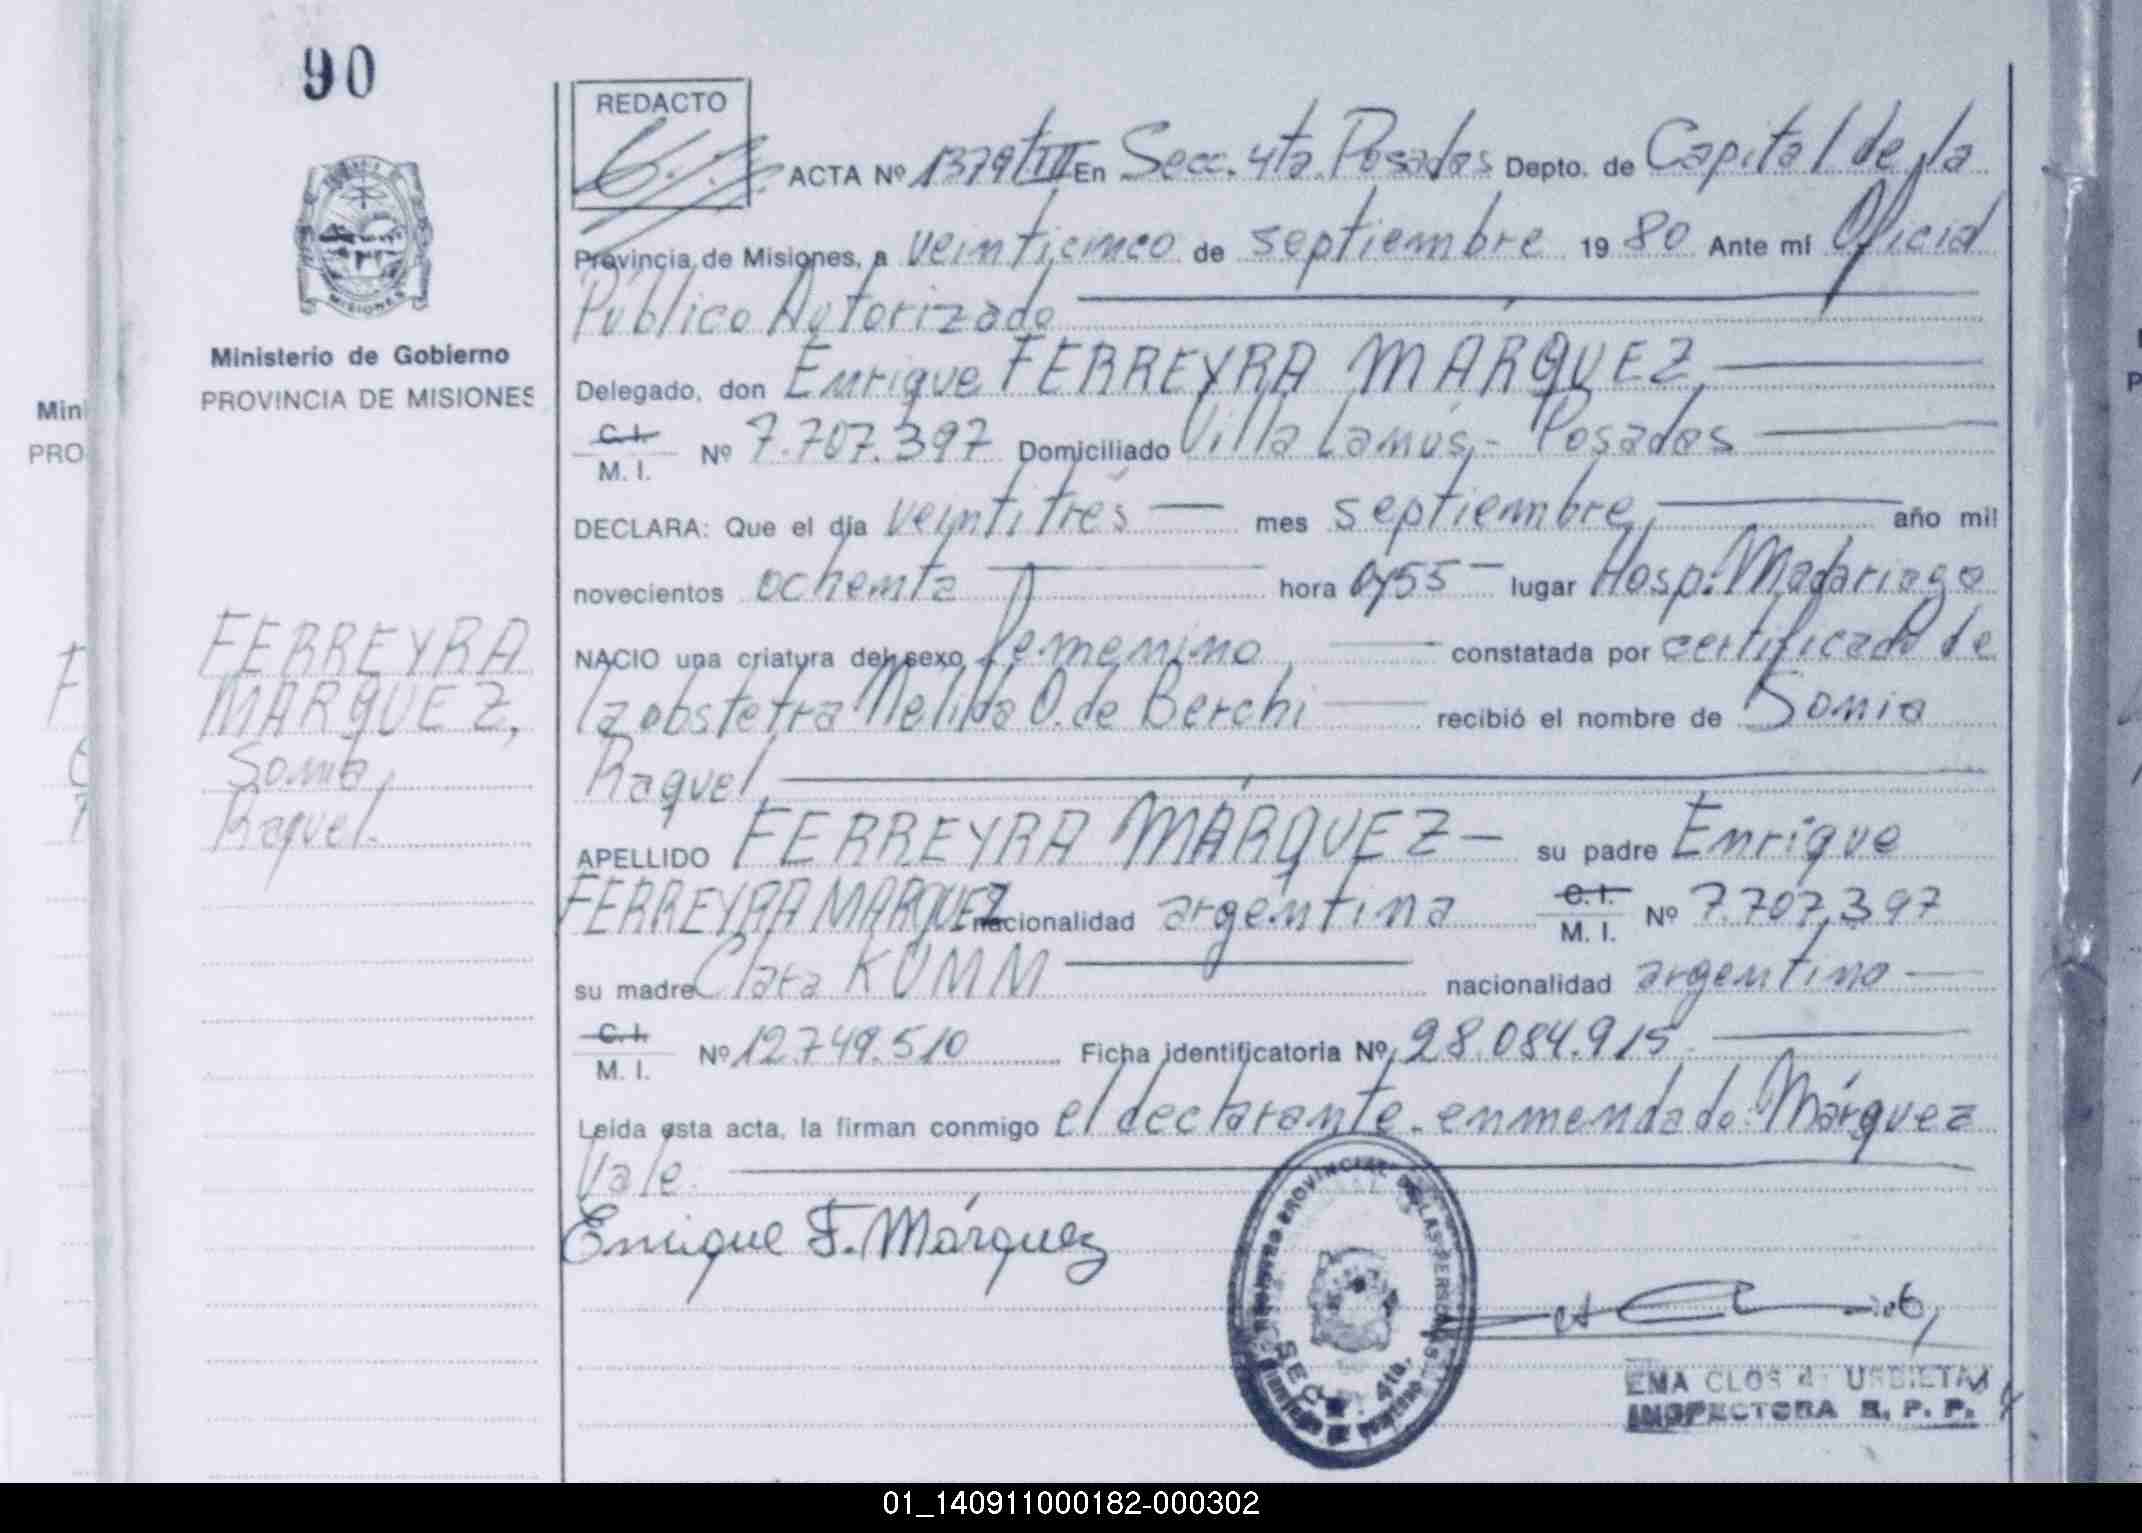 90
REDACTO
ACTA Nº 1379/III En Secc. 4ta. Posadas Depto. de Capital de la
Provincia de Misiones, a veinticinco de septiembre 1980 Ante mí Oficial
Público Autorizado
Delegado, don Enrique FERREYRA MÁRQUEZ,
C.I.
M. I. Nº 7.707.397 Domiciliado Villa Lanús,- Posadas
DECLARA: Que el día veintitrés mes septiembre, año mil
novecientos ochenta hora 0,55 lugar Hosp. Madariaga
NACIO una criatura del sexo femenino, constatada por certificado de
la obstetra Nelida O. de Berchi recibió el nombre de Sonia
Raquel,
APELLIDO FERREYRA MÁRQUEZ su padre Enrique
FERREYRA MARQUEZ nacionalidad argentina C.I.
M. I. Nº 7.707.397
su madre Clara KUMM nacionalidad argentina
C.I.
M. I. Nº 12.749.510 Ficha identificatoria Nº 28.084.915
Leída esta acta, la firman conmigo el declarante. enmendado: Márquez
Vale.
Enrique F. Márquez
MISIONES
Ministerio de Gobierno
PROVINCIA DE MISIONES
FERREYRA
MARQUEZ,
Sonia
Raquel.
Min
PRO
REGISTRO PROVINCIAL DE LAS PERSONAS
SECC. 4ta.
EMA CLOS de
INSPECTORA R. P. P.
01_140911000182-000302